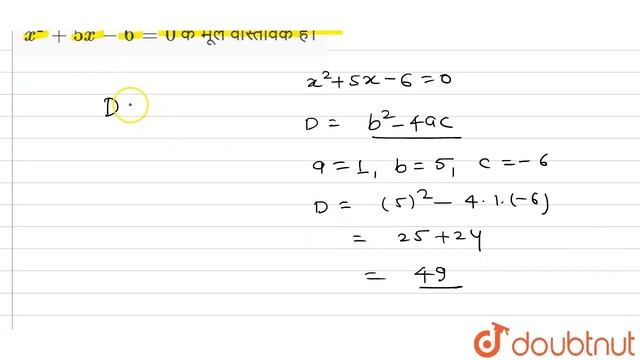 x² + 5x − 6 = 0 के मूल वास्तविक है।
x²+5x−6=0
D
D = b²−4ac
a=1, b=5, c=−6
D = (5)²− 4.1.(−6)
= 25+24
= 49
doubtnut